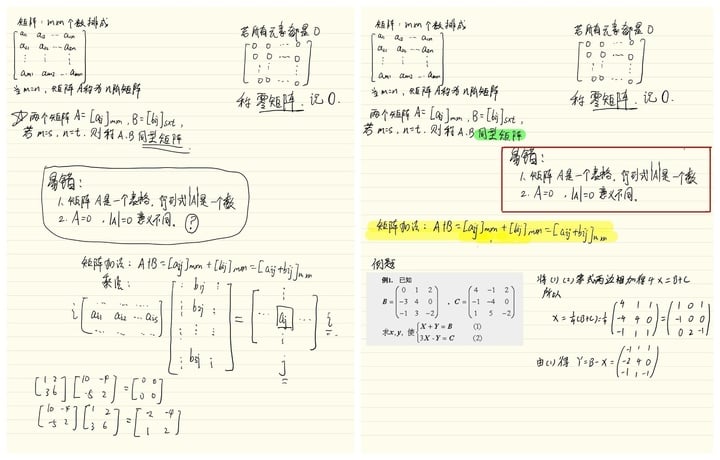 矩阵：mn个数排成
[a₁₁ a₁₂ … a₁ₙ
a₂₁ a₂₂ … a₂ₙ
⋮ ⋮ ⋮
aₘ₁ aₘ₂ … aₘₙ]
当m=n，矩阵A称为n阶矩阵
若所有元素都是0
[0 0 … 0
0 0 … 0
⋮ ⋮ ⋮
0 0 … 0]
称 零矩阵，记0.
两个矩阵 A=[aij]mn，B=[bij]sxt，
若m=s，n=t. 则称A.B同型矩阵
易错：
1. 矩阵A是一个表格，行列式|A|是一个数
2. A=0，|A|=0 意义不同。?
矩阵加法：A+B=[aij]mn+[bij]mn=[aij+bij]mn
乘法：
i [ai1 ai2 … ais] [b1j b2j ⋮ bsj] = [… aij …] i
j
[1 2
3 6] [10 -4
-5 2] = [0 0
0 0]
[10 -4
-5 2] [1 2
3 6] = [-2 -4
1 2]
矩阵：mn个数排成
[a₁₁ a₁₂ … a₁ₙ
a₂₁ a₂₂ … a₂ₙ
⋮ ⋮ ⋮
aₘ₁ aₘ₂ … aₘₙ]
当m=n，矩阵A称为n阶矩阵
若所有元素都是0
[0 0 … 0
0 0 … 0
⋮ ⋮ ⋮
0 0 … 0]
称 零矩阵，记0.
两个矩阵 A=[aij]mn，B=[bij]sxt，
若m=s，n=t. 则称A.B同型矩阵
易错：
1. 矩阵A是一个表格，行列式|A|是一个数
2. A=0，|A|=0 意义不同。
矩阵加法：A+B=[aij]mn+[bij]mn=[aij+bij]mn
例题
例1. 已知
B=(0 1 2
-3 4 0
-1 3 -2)，C=(4 -1 2
-1 -4 0
1 5 -2)
求x,y, 使{X+Y=B (1)
3X-Y=C (2)
将(1)(2)等式两边相加得4X=B+C
所以
X=¼(B+C)=¼(4 1 1
-4 4 0
-1 1 1)=(1 0 1
-1 0 0
0 2 -1)
由(1)得 Y=B-X=(-1 1 1
-2 4 0
-1 1 -1)